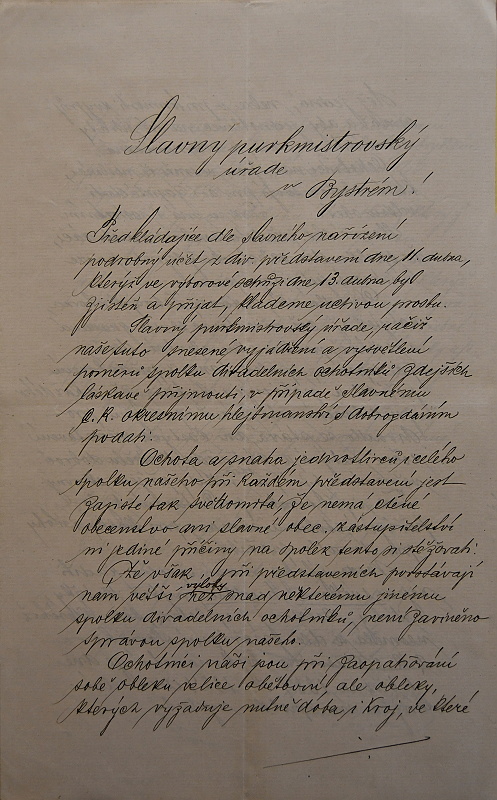 Slavný purkmistrovský
úřade
v Bystrém!
Předkládajíce dle slavného nařízení
podrobný účet z div. představení dne, 11. dubna,
kterýž ve výborové schůzi dne, 13. dubna, byl
zjištěn a přijat, klademe uctivou prosbu.
Slavný purkmistrovský úřade, račiž
naše tuto snesené vyjádření a vysvětlení
poměrů spolku divadelních ochotníků zdejších
láskavě přijmouti, v případě slavnému
C. K. okresnímu hejtmanství s dobrozdáním
podati.
Ochota a snaha jednotlivců i celého
spolku našeho při každém představení jest
zajisté tak svědomitá, že nemá ctěné
obecenstvo ani slavné obec. zastupitelství
ni jediné příčiny na spolek tento si stěžovati.
Že však při představeních povstávají
nám větší výlohy než snad některému jinému
spolku divadelních ochotníků, není zaviněno
správou spolku našeho.
Ochotníci naši jsou při zaopatřování
sobě obleku velice obětovní, ale obleky,
kterých vyžaduje nutně doba i kroj, ve které